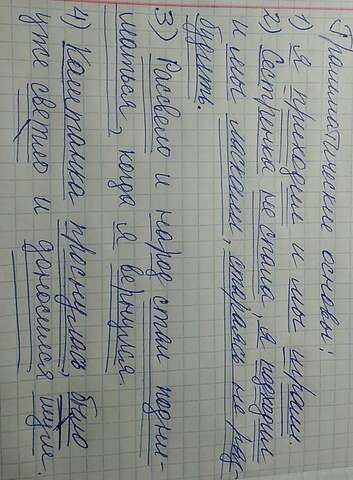 Грамматические основы:
1) Я приходил и мы играли.
2) Сестрёнка не спала, я подходил
и мы лежали, стараясь не раз-
будить.
3) Рассвело и народ стал подни-
маться, когда я вернулся.
4) Каштанка проснулась, было
уже светло и доносился шум.